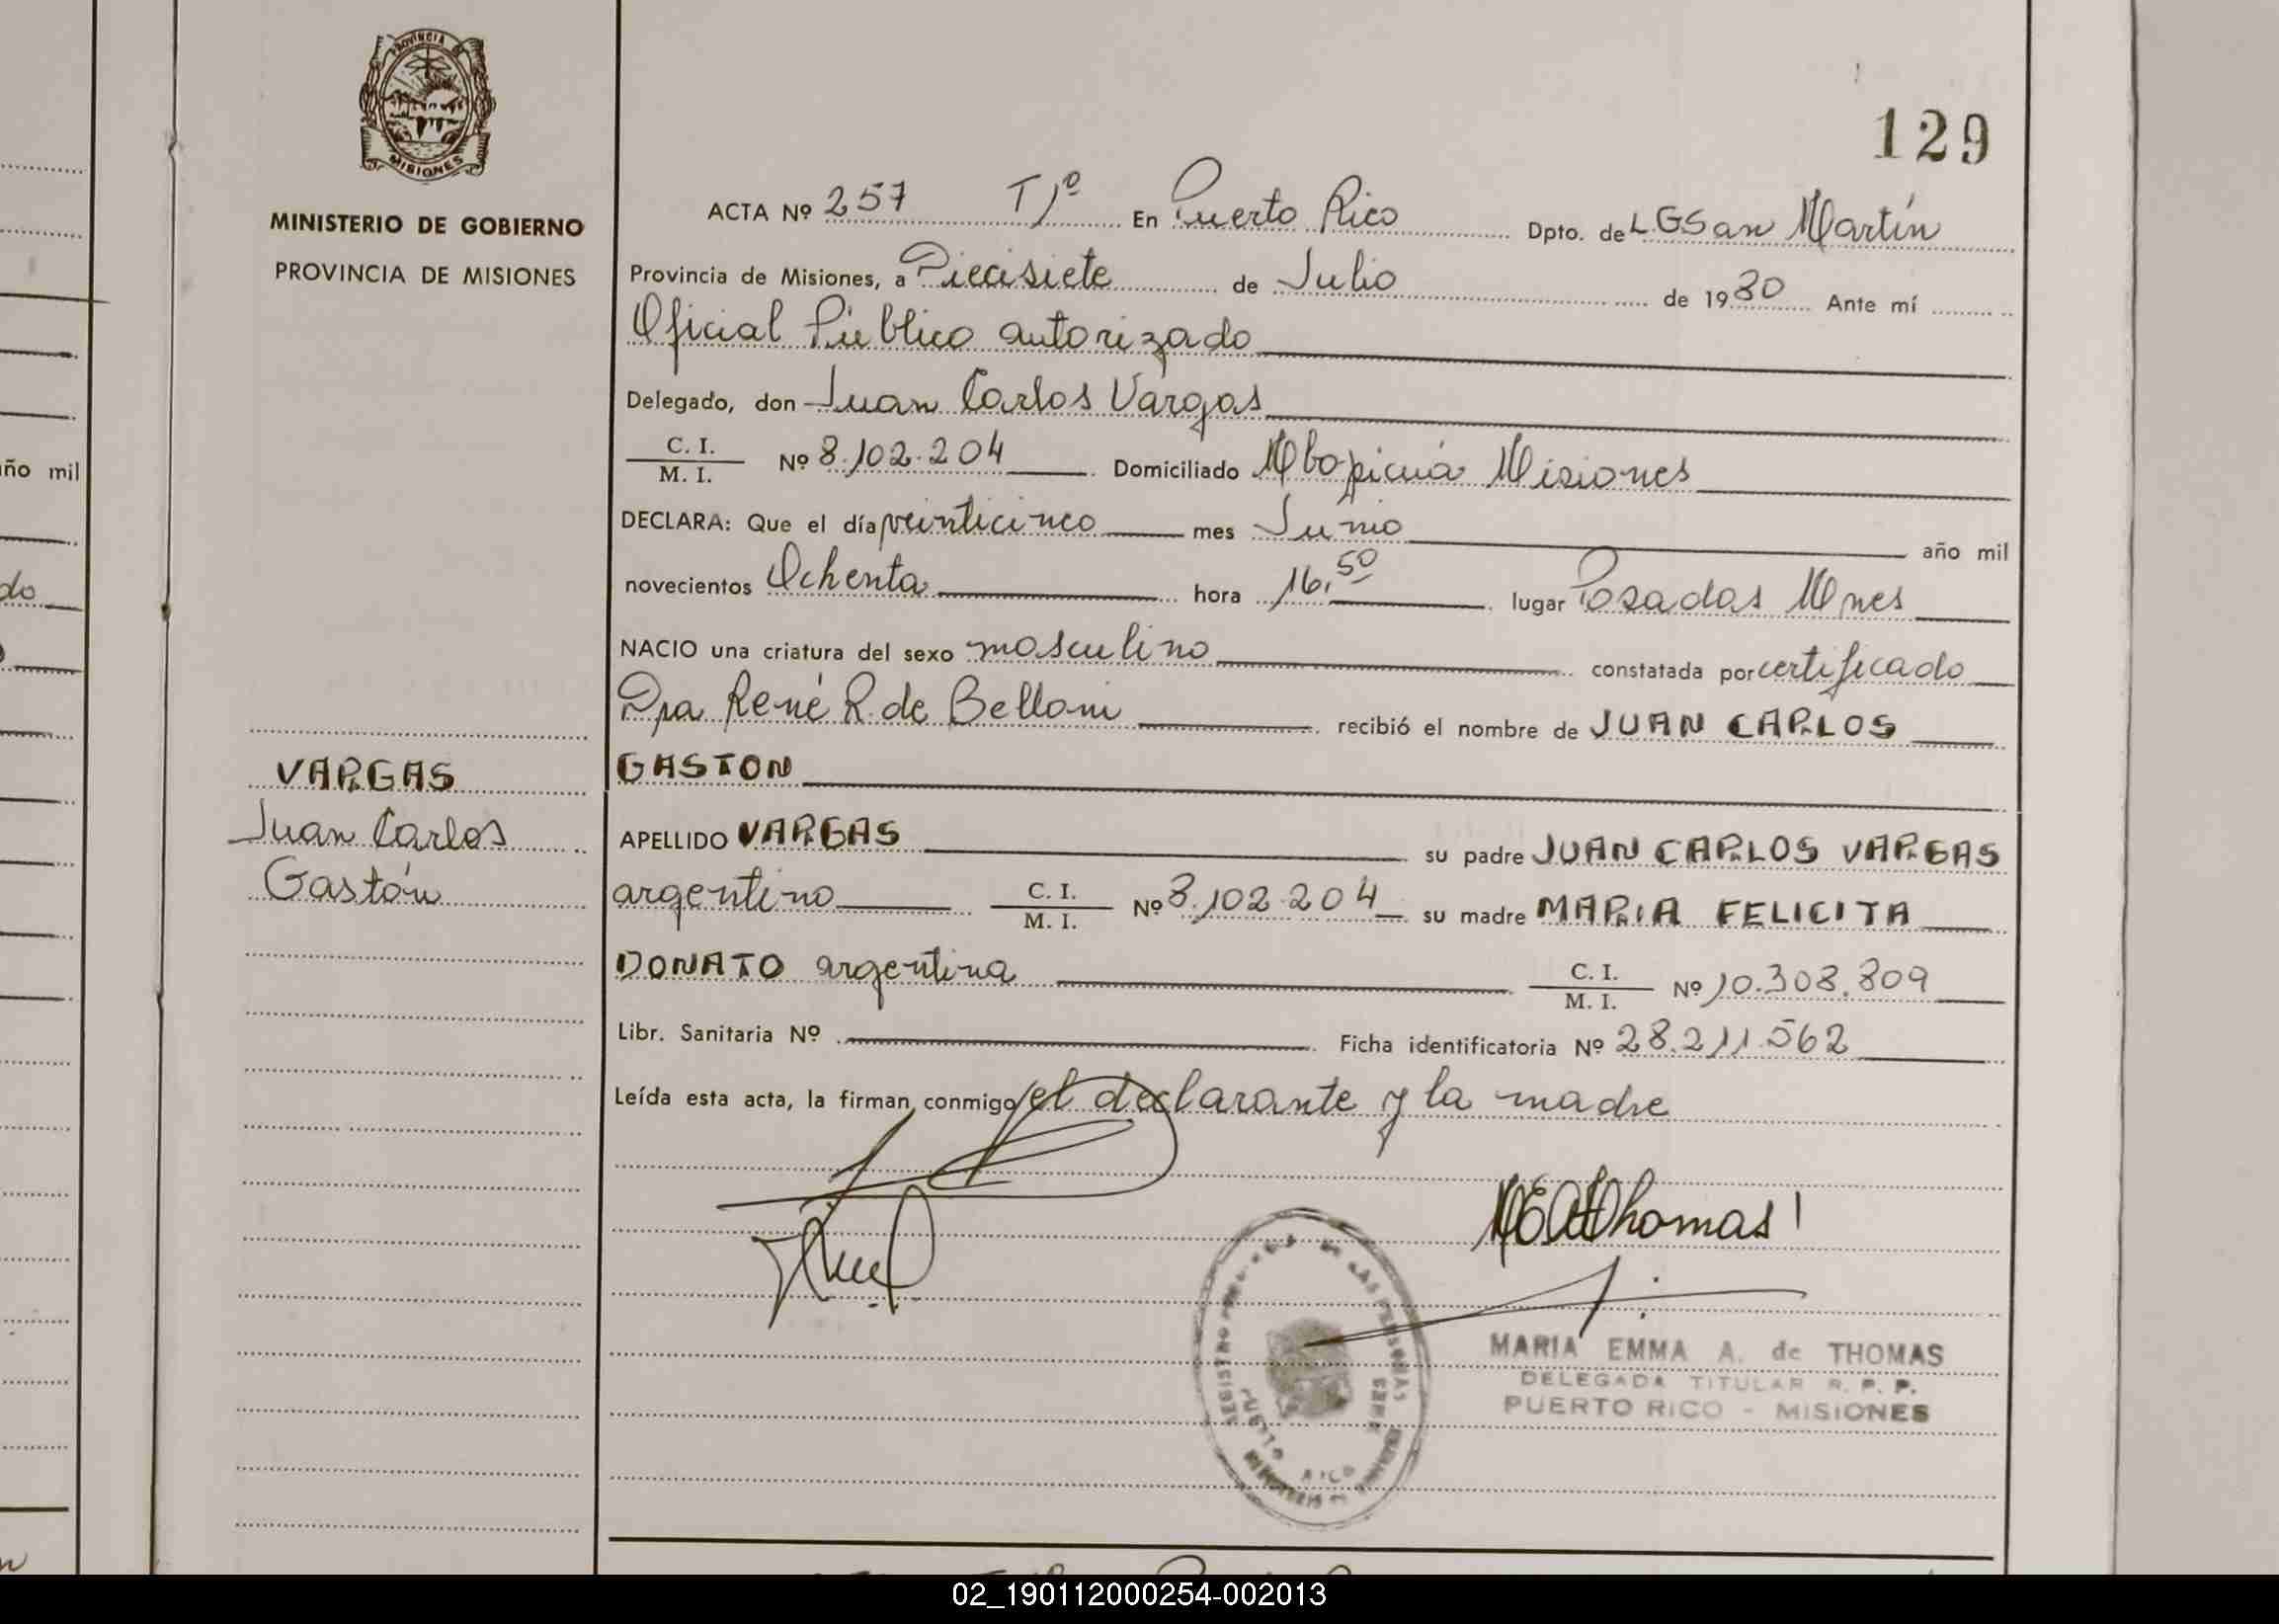 PROVINCIA DE
MISIONES
MINISTERIO DE GOBIERNO
PROVINCIA DE MISIONES
129
ACTA Nº 257 Tº En Puerto Rico Dpto. de L.G San Martín
Provincia de Misiones, a Diecisiete de Julio de 1980 Ante mí
Oficial Público autorizado
Delegado, don Juan Carlos Vargas
C. I.
M. I. Nº 8.102.204 Domiciliado Mbopicuá Misiones
DECLARA: Que el día veinticinco mes Junio año mil
novecientos Ochenta hora 16,50 lugar Posadas Mnes
NACIO una criatura del sexo masculino constatada por certificado
Dra René R. de Belloni recibió el nombre de JUAN CARLOS
GASTON
VARGAS
Juan Carlos
Gastón
APELLIDO VARGAS su padre JUAN CARLOS VARGAS
argentino C. I.
M. I. Nº 8.102.204 su madre MARIA FELICITA
DONATO argentina C. I.
M. I. Nº 10.308.809
Libr. Sanitaria Nº Ficha identificatoria Nº 28.211.562
Leída esta acta, la firman conmigo el declarante y la madre
Thomas
REGISTRO DE LAS PERSONAS
PUERTO RICO
MARIA EMMA A. de THOMAS
DELEGADA TITULAR R. P. P.
PUERTO RICO - MISIONES
año mil
do
02_190112000254-002013